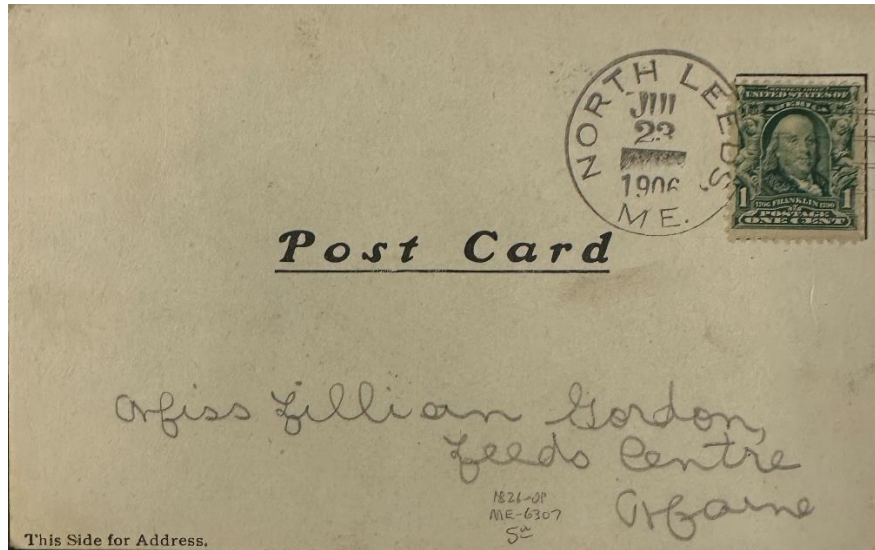 NORTH LEEDS
23
1906
ME.
SERIES 1902
UNITED STATES OF
AMERICA
1 1
1706 FRANKLIN 1790
POSTAGE
ONE CENT
Post Card
Miss Lillian Gordon,
Leeds Centre
Maine
ME-6307
This Side for Address.